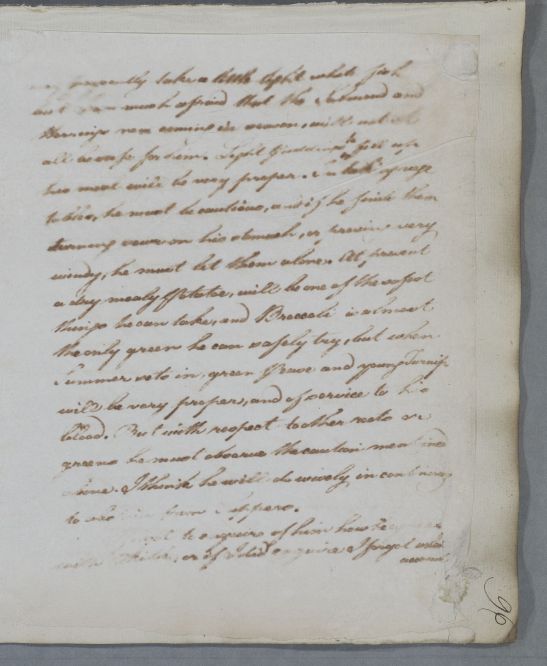 frequently take a little light white fish
but I am much afraid that the Salmond and
Herrings now coming in season, will not at
all be safe for him. Light Puddings to fill up
his meat will be very proper. In taking vege
tables, he must be cautious, and if he finds them
turning sour on his stomach, or proving very
windy, he must let them alone. At present
a dry mealy Potatoe, will be one of the safest
things he can take, and Broccoli is almost
the only green he can safely try, but when
Summer sets in, green Pease and young Turnip
will be very proper, and of service to his
blood. But with respect to other roots or
greens he must observe the caution mentioned
above. I think he will do wisely in continuing
to from Suppers.
to enquire of him how he
with or if I did enquire I forget what
answer
96